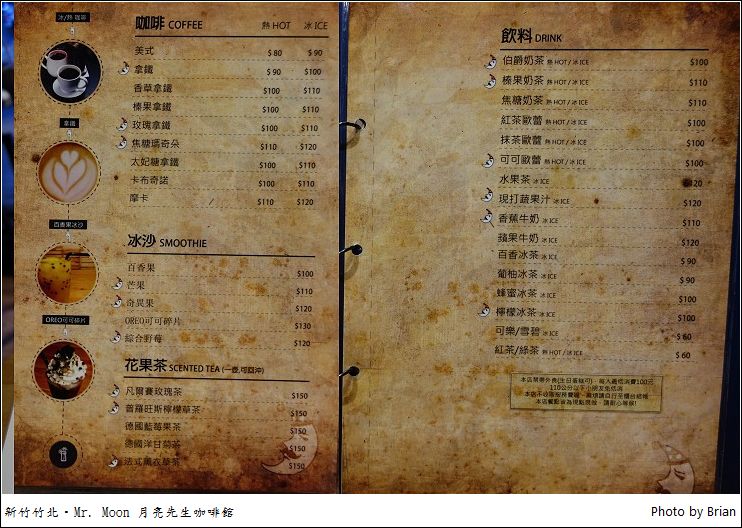 冰/熱 咖啡
咖啡 COFFEE 熱 HOT 冰 ICE
美式 $80 $90
拿鐵 $90 $100
香草拿鐵 $100 $110
榛果拿鐵 $100 $110
玫瑰拿鐵 $100 $110
焦糖瑪奇朵 $110 $120
太妃糖拿鐵 $100 $110
卡布奇諾 $100 $110
摩卡 $110 $120
拿鐵
百香果冰沙
OREO可可碎片
冰沙 SMOOTHIE
百香果 $100
芒果 $110
奇異果 $120
OREO可可碎片 $130
綜合野莓 $120
花果茶 SCENTED TEA (一壺,可回沖)
凡爾賽玫瑰茶 $150
普羅旺斯檸檬草茶 $150
德國藍莓果茶 $150
德國洋甘菊茶 $150
法式薰衣草茶 $150
飲料 DRINK
伯爵奶茶 熱 HOT / 冰 ICE $100
榛果奶茶 熱 HOT / 冰 ICE $110
焦糖奶茶 熱 HOT / 冰 ICE $110
紅茶歐蕾 熱 HOT / 冰 ICE $100
抹茶歐蕾 熱 HOT / 冰 ICE $100
可可歐蕾 熱 HOT / 冰 ICE $100
水果茶 冰 ICE $120
現打蔬果汁 冰 ICE $120
香蕉牛奶 冰 ICE $110
蘋果牛奶 冰 ICE $120
百香冰茶 冰 ICE $90
葡柚冰茶 冰 ICE $90
蜂蜜冰茶 冰 ICE $100
檸檬冰茶 冰 ICE $100
可樂/雪碧 冰 ICE $60
紅茶/綠茶 熱 HOT / 冰 ICE $60
本店禁帶外食(生日蛋糕可)，每人最低消費100元
110公分以下小朋友免低消
本店不收取服務費喔，麻煩請自行至櫃台結帳
本店餐點皆為現點現做，請耐心等候!
新竹竹北‧Mr. Moon 月亮先生咖啡館
Photo by Brian